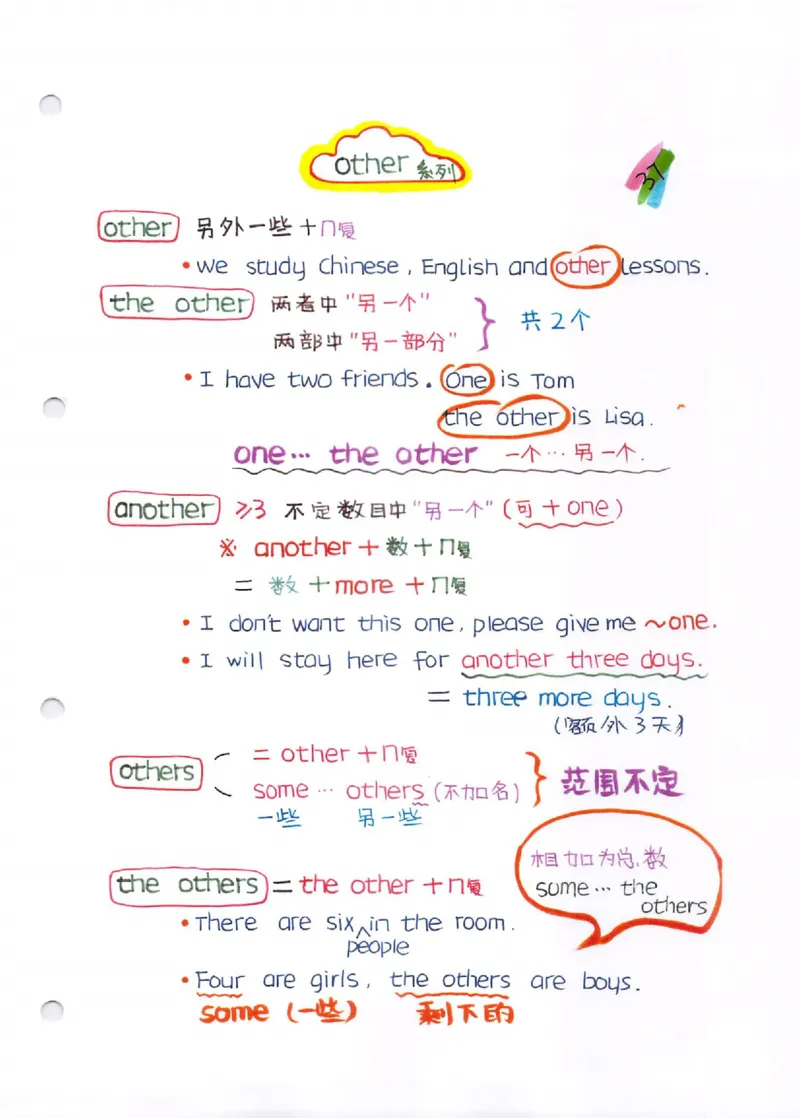 other 系列
37
other 另外一些 + n复
• We study Chinese, English and other lessons.
the other 两者中 "另一个"
两部中 "另一部分"
共2个
• I have two friends. One is Tom
the other is Lisa.
one… the other 一个…另一个.
another ≥3 不定数目中"另一个" (可 + one)
※ another + 数 + n复
= 数 + more + n复
• I don't want this one, please give me ~one.
• I will stay here for another three days.
= three more days.
(额外3天)
others = other + n复
some … others (不加名)
一些 另一些
范围不定
相加为总数
some … the
others
the others = the other + n复
• There are six people in the room.
• Four are girls, the others are boys.
some (一些) 剩下的